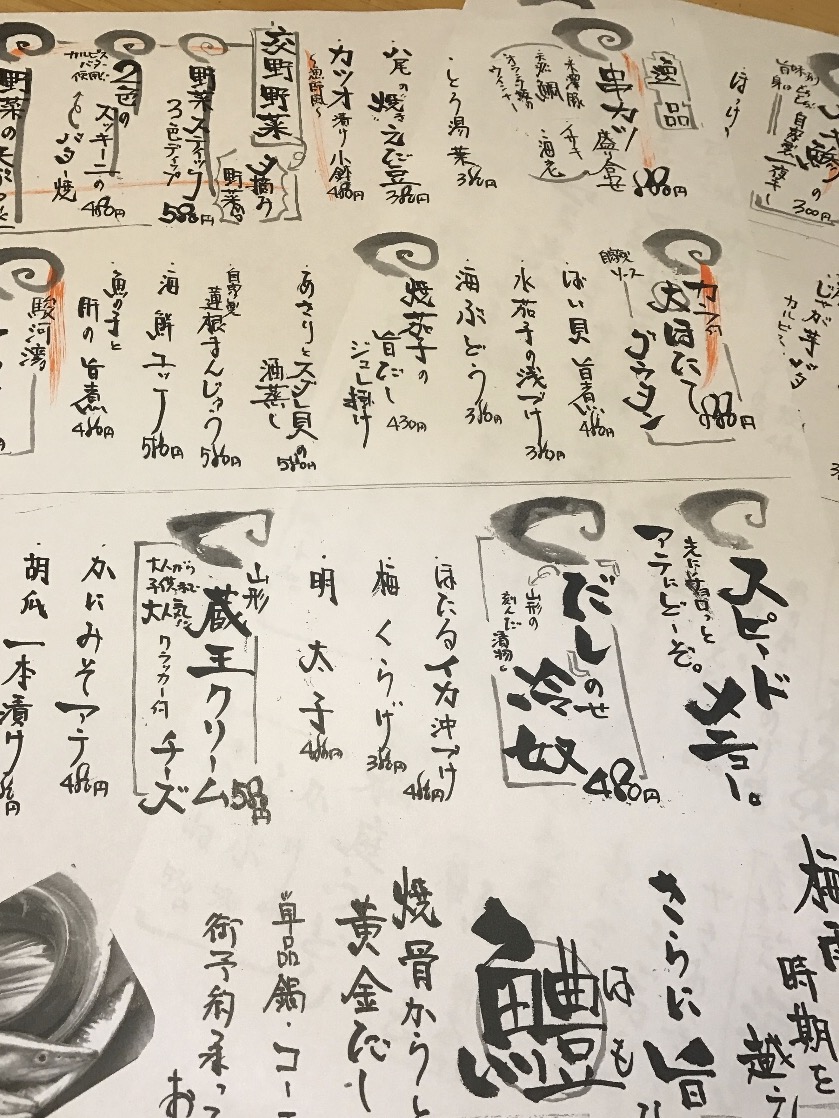 ほっけ
逸品
串カツ 盛り合せ
米澤豚
天然鯛 イサキ
海老
とう湯葉 380円
八尾の焼きえだ豆 380円
カツオ漬け小鉢 480円
交野野菜
夕摘み
野菜の
野菜スティック
3色ディップ 580円
2色の
ズッキーニの
バター焼 480円
カルピス
バター
使用
野菜の天ぷら
じゃが芋バタ
カルピス
自家製
ソース
大ほたて
グラタン
ばい貝 旨煮 480円
水茄子の浅づけ 380円
海ぶどう 380円
焼茄子の
旨だし
ジュレ掛け 430円
あさりと
酒蒸し 580円
自家製
蓮根まんじゅう 580円
海鮮ユッケ 580円
魚の子と
肝の旨煮 480円
駿河湾
スピード
メニュー。
アテにどーぞ。
だしのせ
冷奴 480円
山形の
刻んだ
漬物
ほたるイカ沖づけ 480円
梅くらげ 380円
明太子 480円
山形
蔵王クリーム
チーズ 580円
大人から
子供まで
大人気
クラッカー付
かにみそアテ 480円
胡瓜一本漬け
梅雨
時期を
越え
さらに旨
はも
鱧
焼骨からと
黄金だし
単品鍋・コー
御予約承って
お